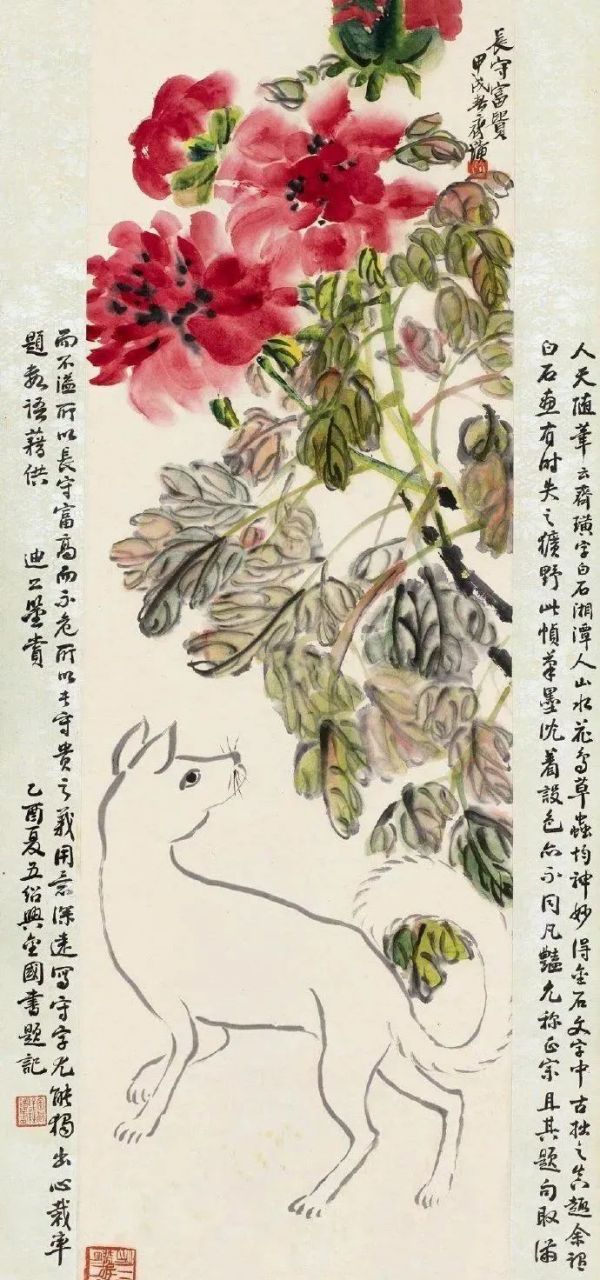 長守富貴
甲戌齊璜
人天随筆云齊璜字白石湘潭人山水花鳥草蟲均神妙得金石文字中古拙之真趣余
白石畫有時失之獷野此幀筆墨沈着設色亦不同凡豔尤称正宗且其題句取滿
而不溢所以長守富高而不危所以長守貴之義用意深遠寫守字尤能獨出心裁率
題數語藉供 迪公鑒賞
乙酉夏五紹興金國書題記